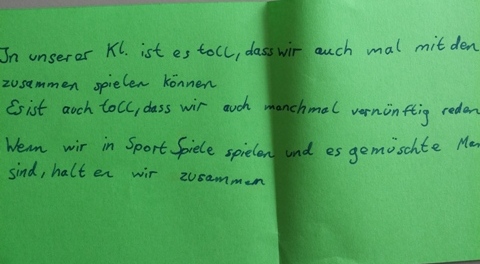 In unserer Kl. ist es toll, dass wir auch mal mit den
zusammen spielen können
Es ist auch toll, dass wir auch manchmal vernünftig reden
Wenn wir in Sport Spiele spielen und es gemüschte
sind, halten wir zusammen